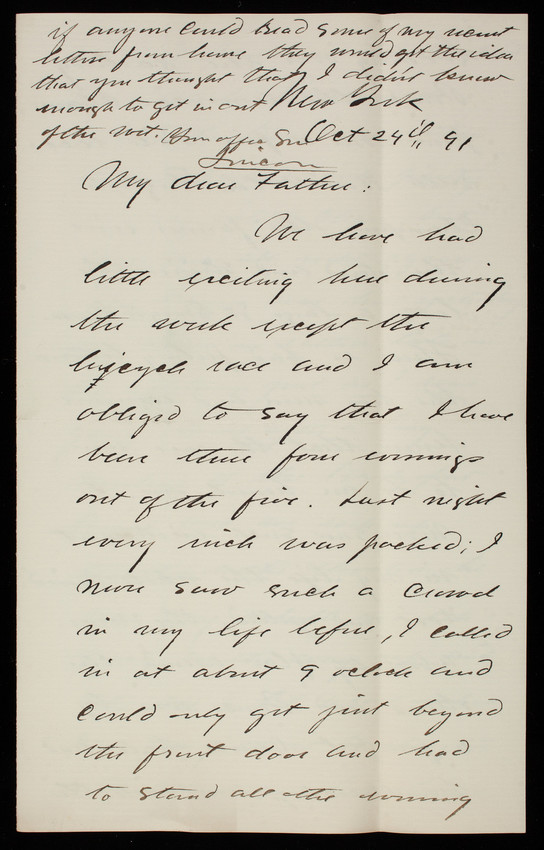 if anyone could read some of my recent
letters from home they would get the idea
that you thought that I didn't know
enough to get in out
of the wet. Your affec Son
New York
Oct 24th 91
My dear Father:
We have had
little exciting here during
the week except the
bicycle race and I am
obliged to say that I have
been there four evenings
out of the five. Last night
every inch was packed; I
never saw such a crowd
in my life before, I called
in at about 9 oclock and
could only get just beyond
the front door and had
to stand all the evening